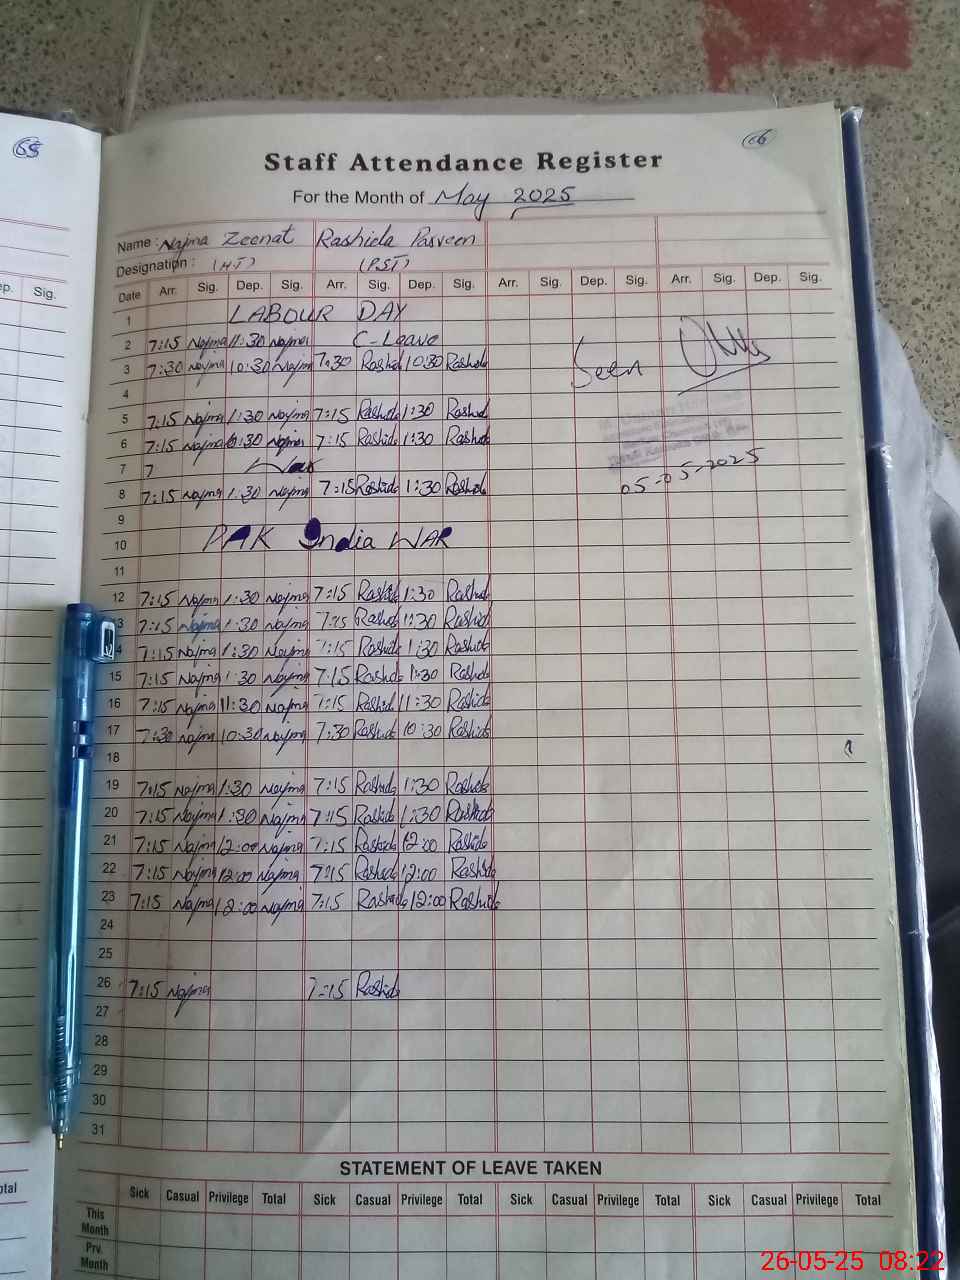 65
66
Staff Attendance Register
For the Month of May 2025
Name : Najma Zeenat Rashida Parveen
Designation : (HT) (PST)
ep. Sig. Date Arr. Sig. Dep. Sig. Arr. Sig. Dep. Sig. Arr. Sig. Dep. Sig. Arr. Sig. Dep. Sig.
1 LABOUR DAY
2 7:15 Najma 11:30 Najma C-Leave
3 7:30 Najma 10:30 Najma 7:30 Rashida 10:30 Rashida Seen
4
5 7:15 Najma 1:30 Najma 7:15 Rashid 1:30 Rashid
6 7:15 Najma 1:30 Najma 7:15 Rashid 1:30 Rashid
7 7 War
8 7:15 Najma 1:30 Najma 7:15 Rashida 1:30 Rashida 05-05-2025
9
10 PAK India WAR
11
12 7:15 Najma 1:30 Najma 7:15 Rashid 1:30 Rashid
13 7:15 Najma 1:30 Najma 7:15 Rashid 1:30 Rashid
14 7:15 Najma 1:30 Najma 7:15 Rashid 1:30 Rashid
15 7:15 Najma 1:30 Najma 7:15 Rashida 1:30 Rashid
16 7:15 Najma 11:30 Najma 7:15 Rashid 11:30 Rashid
17 7:30 Najma 10:30 Najma 7:30 Rashid 10:30 Rashid
18
19 7:15 Najma 1:30 Najma 7:15 Rashida 1:30 Rashida
20 7:15 Najma 1:30 Najma 7:15 Rashida 1:30 Rashida
21 7:15 Najma 12:00 Najma 7:15 Rashida 12:00 Rashida
22 7:15 Najma 12:00 Najma 7:15 Rashid 12:00 Rashida
23 7:15 Najma 12:00 Najma 7:15 Rashida 12:00 Rashida
24
25
26 7:15 Najma 7:15 Rashid
27
28
29
30
31
STATEMENT OF LEAVE TAKEN
otal Sick Casual Privilege Total Sick Casual Privilege Total Sick Casual Privilege Total Sick Casual Privilege Total
This
Month
Prv.
Month
26-05-25 08:22